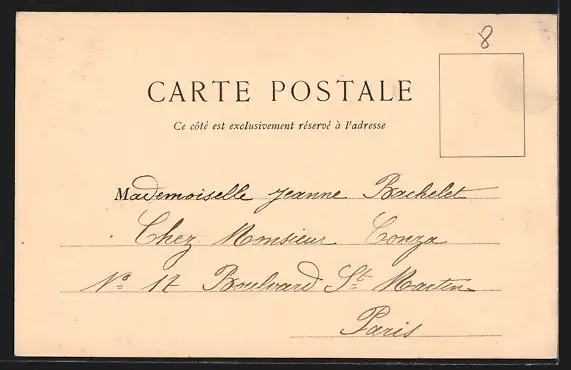 8
CARTE POSTALE
Ce côté est exclusivement réservé à l'adresse
Mademoiselle Jeanne Bachelet
Chez Monsieur Conza
Nº 17 Boulvard St Martin
Paris